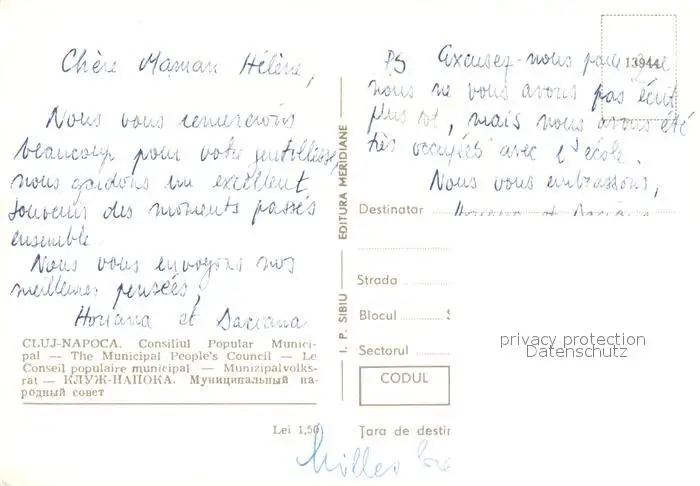 Chère Maman Hélène,
Nous vous remercions
beaucoup pour votre gentillesse,
nous gardons un excellent
souvenir des moments passés
ensemble.
Nous vous envoyons nos
meilleures pensées,
Horiana et Dariana
CLUJ-NAPOCA. Consiliul Popular Munici-
pal — The Municipal People's Council — Le
Conseil populaire municipal — Munizipalvolks-
rat — КЛУЖ-НАПОКА. Муниципальный на-
родный совет
Lei 1,50
I. P. SIBIU — EDITURA MERIDIANE
13944
PS Excusez-nous parce que
nous ne vous avons pas écrit
plus tot, mais nous avons été
très occupées avec l'école.
Nous vous embrassons,
Horiana et Dariana
Destinatar
Strada
Blocul
Sectorul
CODUL
Țara de destin
privacy protection
Datenschutz